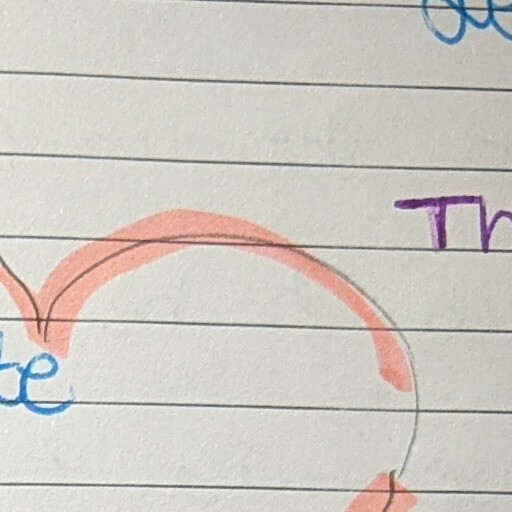 Th
te